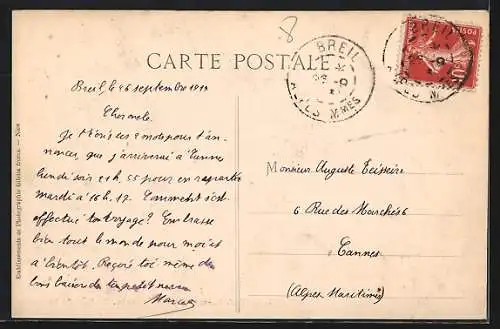 8
CARTE POSTALE
BREIL
ALPES MMES
Breil, le 26 septembre 191
Je t'écris ces 2 mots pour t'an-
noncer, que j'arriverai à Cannes
lundi soir 21h, 55 pour en repartir
mardi à 16 h. 17. Comment s'est
effectué ton voyage? Embrasse
bien tout le monde pour moi et
à bientôt. Reçois toi même de
bons baisers de ton petit
Marcel
Monsieur Auguste Teisseire
6 Rue des Marchés 6
Cannes
(Alpes Maritimes)
Etablissements de Photographie Giletta frères. — Nice